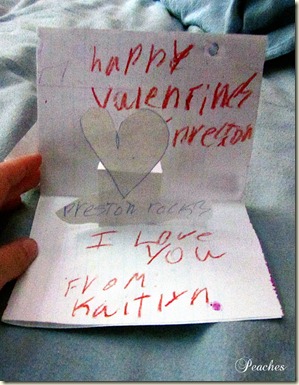 happy
Valentines
preston
preston rocks
I Love
You
From
Kaitlyn
Peaches